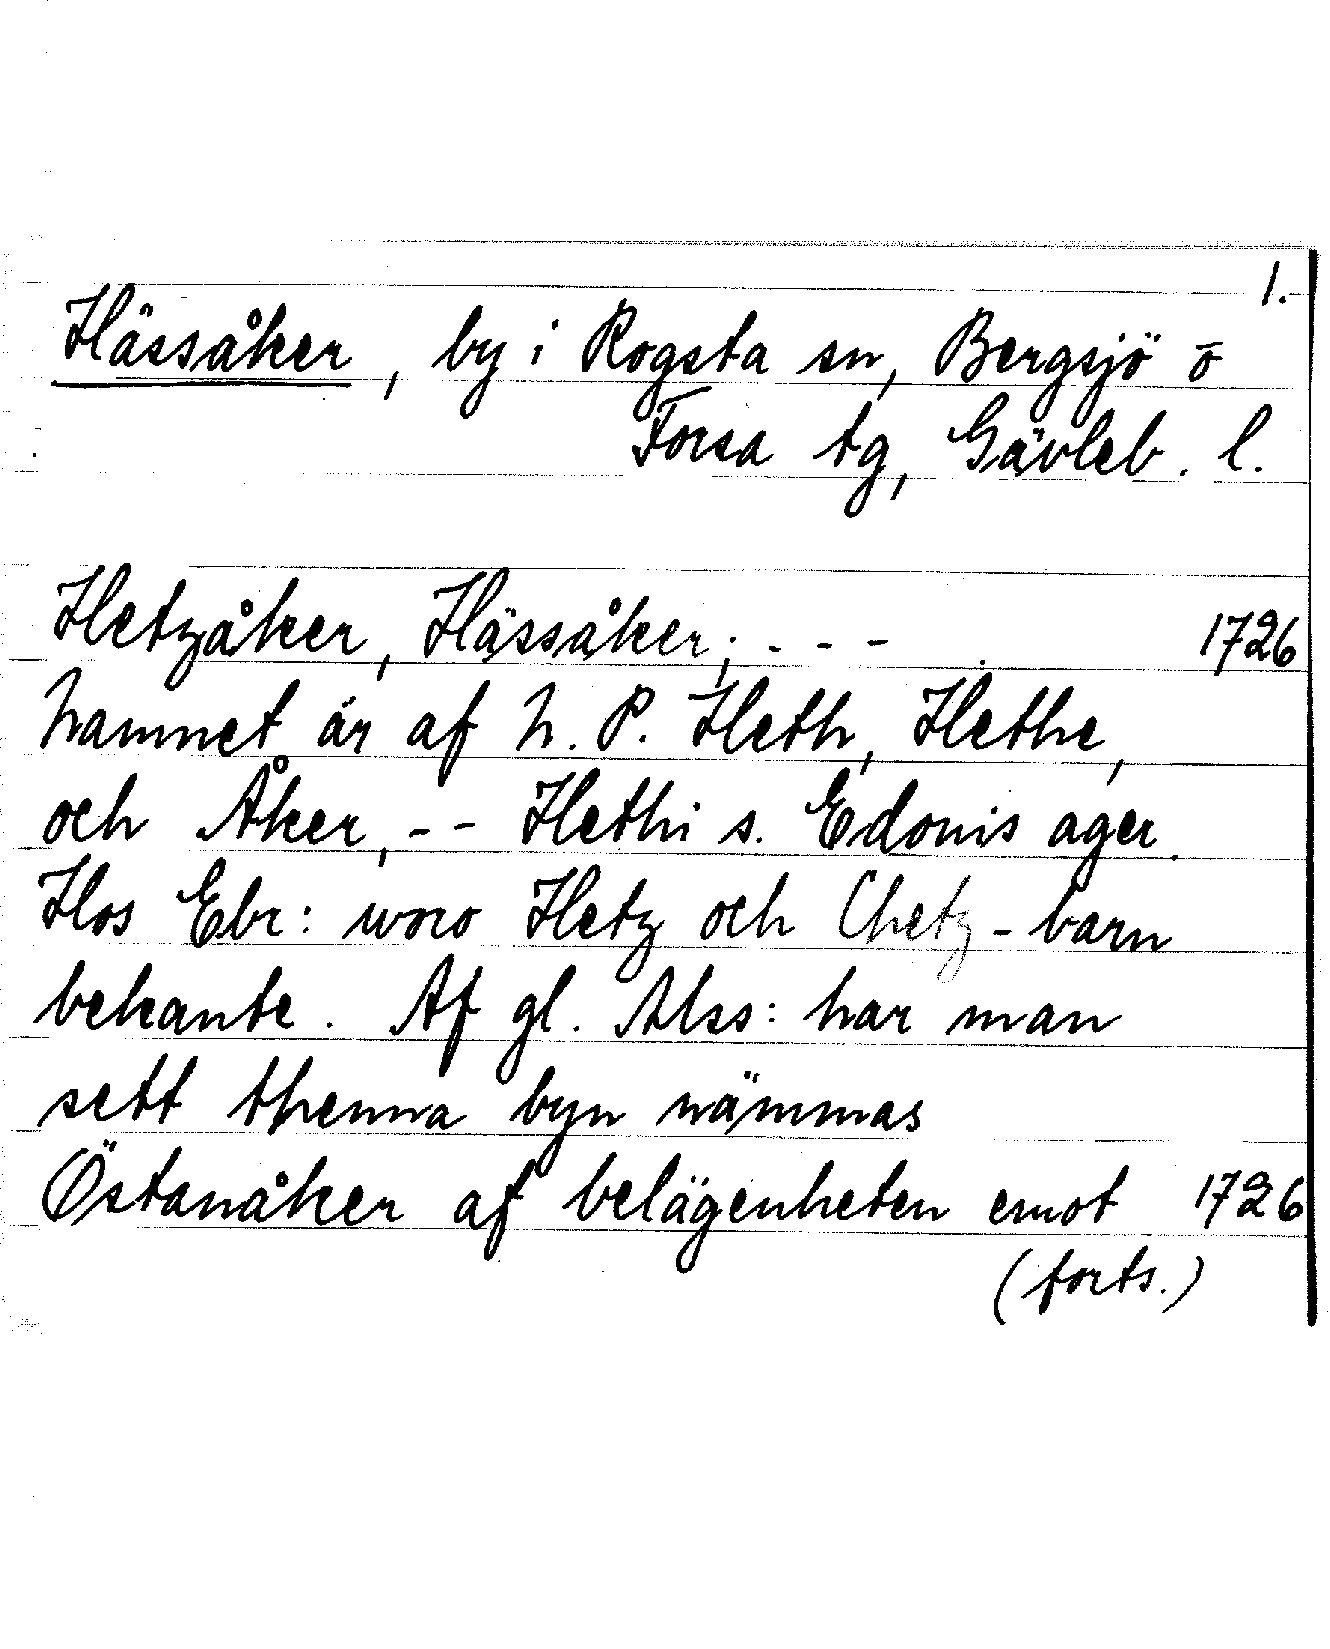 1.
Hässåker, by i Rogsta sn, Bergsjö o
Forsa tg, Gävleb. l.
Hetzåker, Hässåker; - - - 1726
Namnet är af N. P. Heth, Hethe,
och Åker, - - Hethi s. Edonis ager.
Hos Ebr: woro Hetz och Chetz-barn
bekante. Af gl. Mss: har man
sett thenna byn nämmas
Östanåker af belägenheten emot 1726
(forts.)